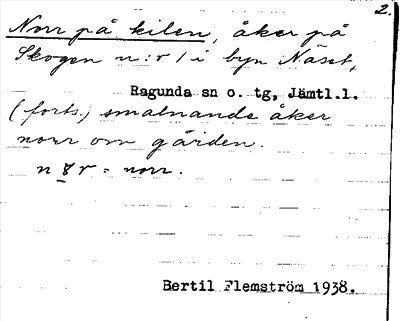 2.
Norr på kilen, åker på
Skogen n:r 1 i byn Näset,
Ragunda sn o. tg, Jämtl.l.
(forts.) smalnande åker
norr om gården.
n r = norr.
Bertil Flemström 1938.